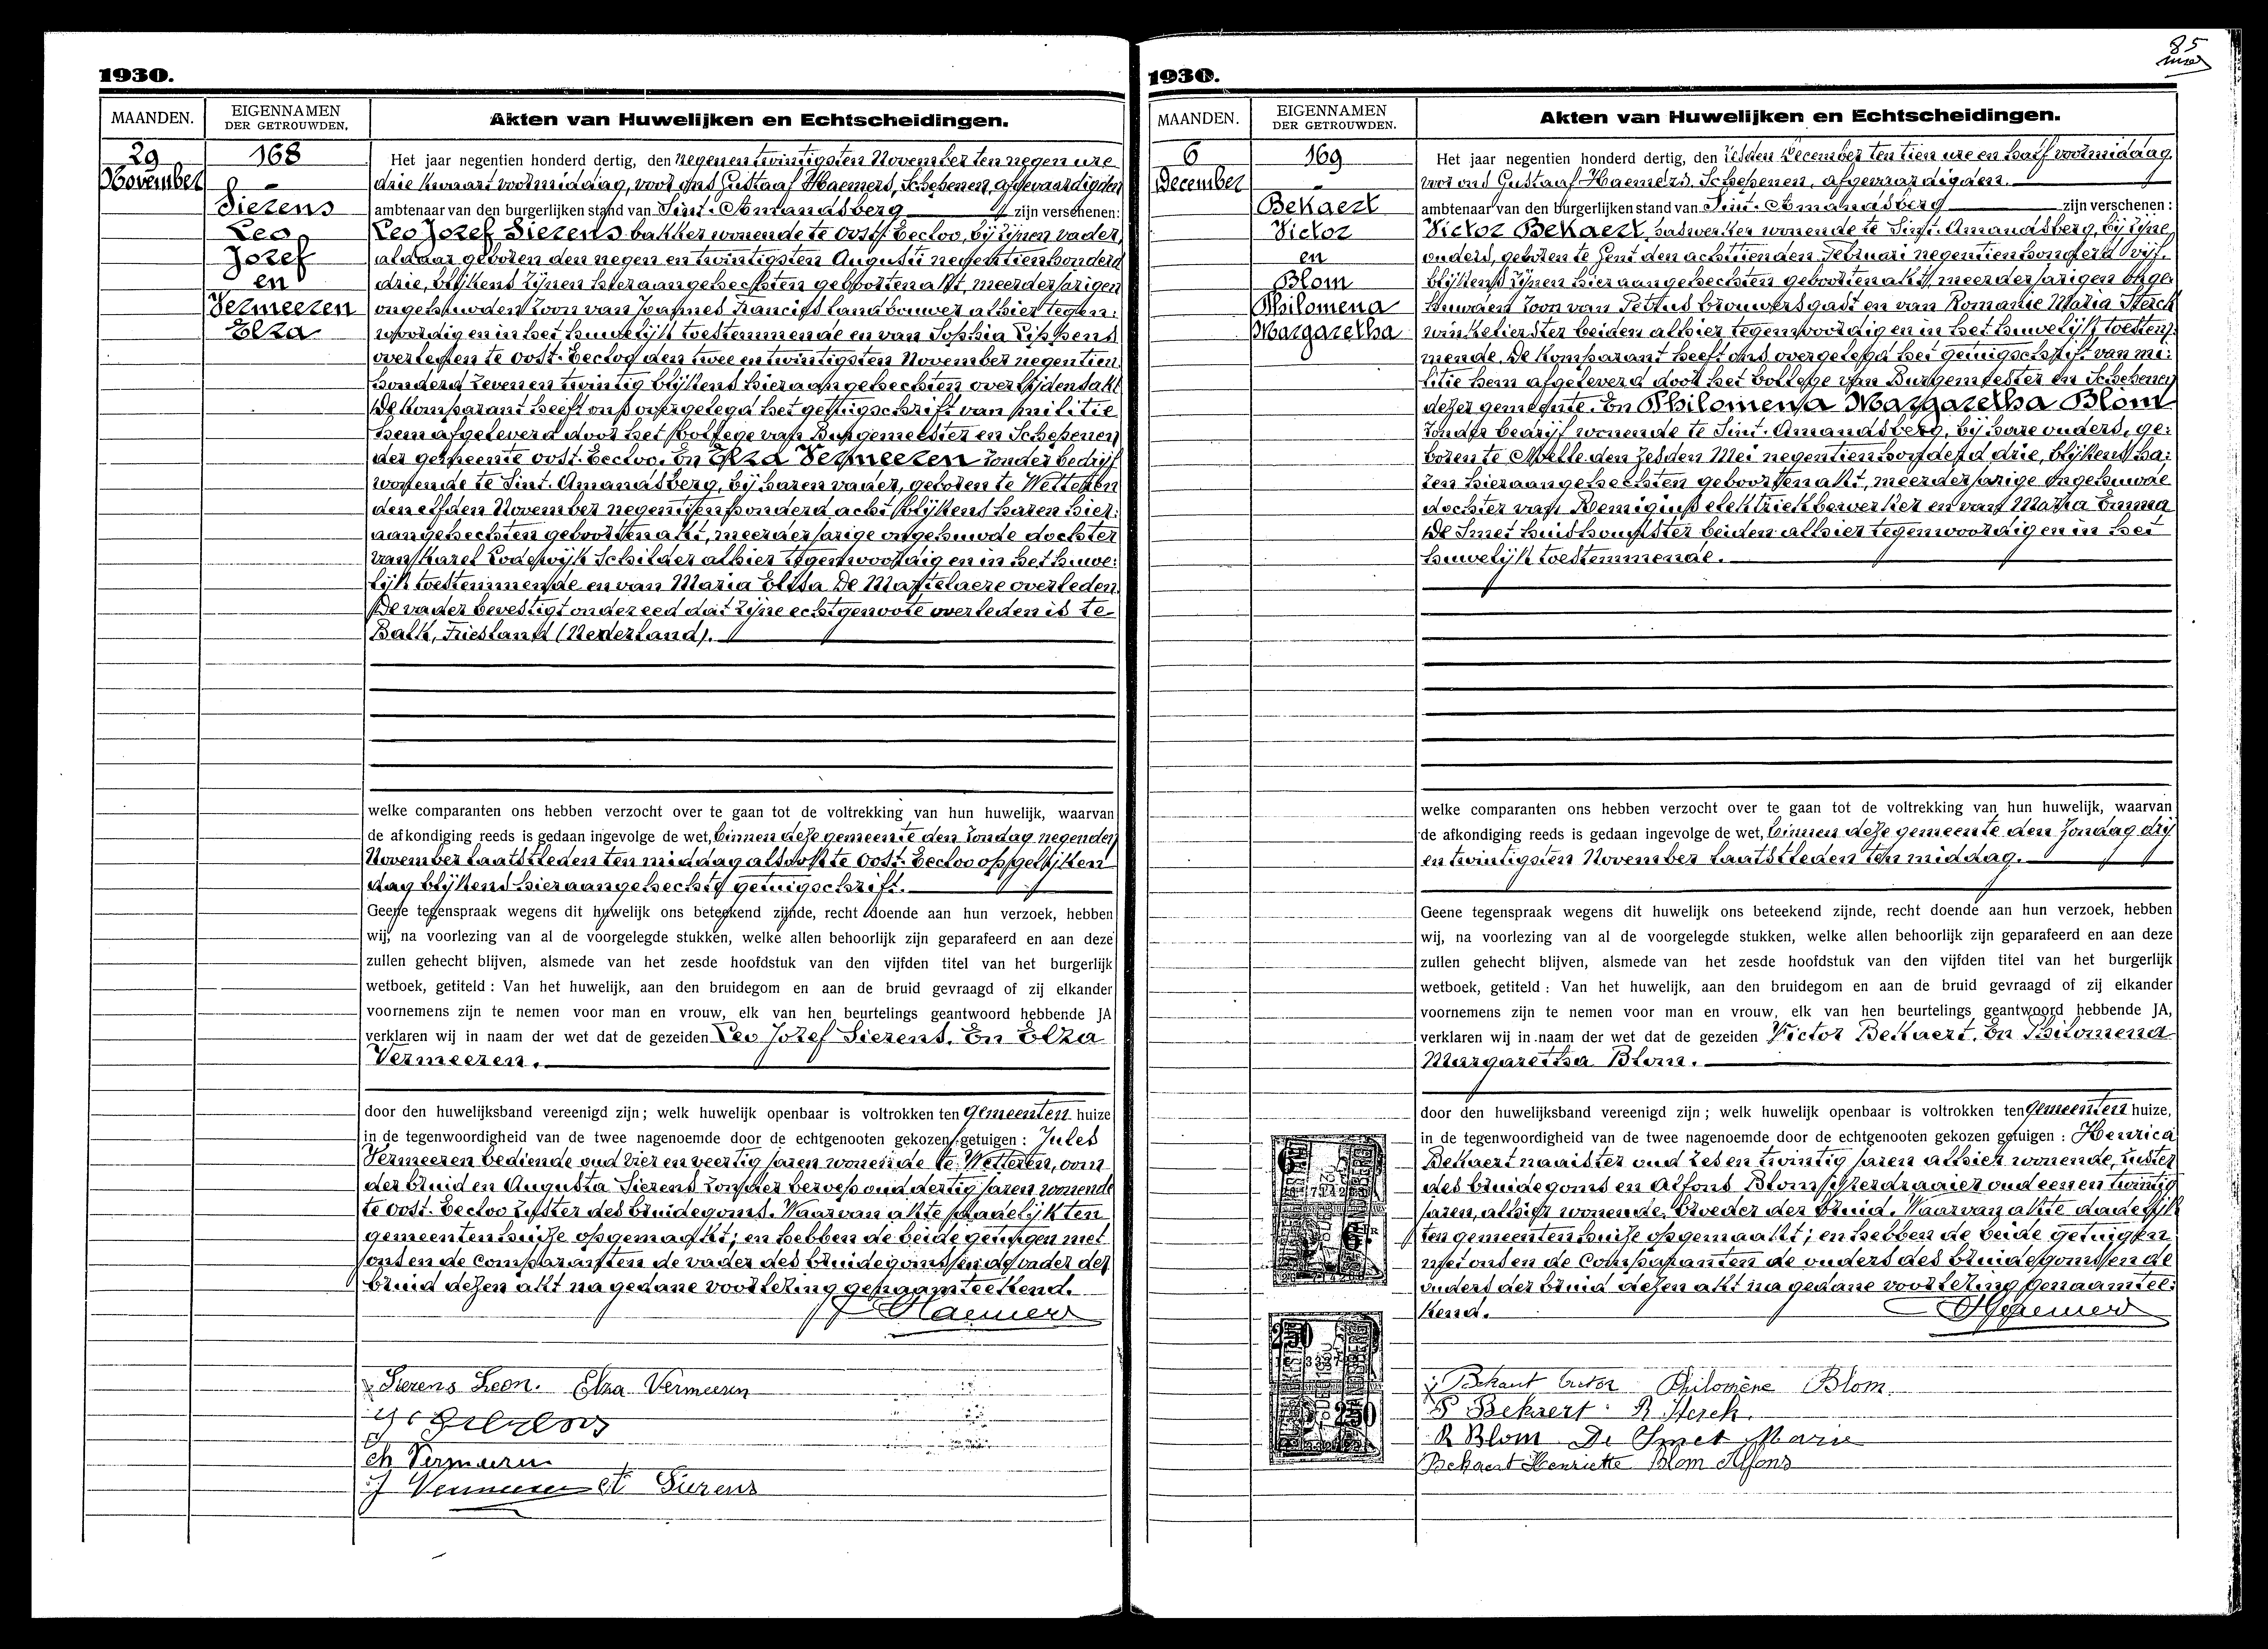 85
1930.
MAANDEN.
EIGENNAMEN
DER GETROUWDEN.
Akten van Huwelijken en Echtscheidingen.
29
November
168
Sierens
Leo
Jozef
en
Vermeeren
Elza
Het jaar negentien honderd dertig, den negenentwintigsten November ten negen ure
drie kwaart voormiddag, voor ons Gustaaf Haemers, Schepenen, afgevaardigden
ambtenaar van den burgerlijken stand van Sint-Amandsberg zijn verschenen:
Leo Jozef Sierens bakker wonende te Oost-Eecloo, bij zijnen vader,
aldaar geboren den negen en twintigsten Augusti negentienhonderd
drie, blijkens zijnen hieraangehechten geboorten akt, meerderjarigen
ongehuwden zoon van Joannes Francies landbouwer alhier tegen:
woordig en in het huwelijk toestemmende en van Sophia Lippens
overleden te Oost-Eecloo den twee en twintigsten November negentien
honderd zeven en twintig blijkens hieraangehechten overlijdensakt
De komparant heeft ons overgelegd het getuigschrift van militie
hem afgeleverd door het Kollege van Burgemeester en Schepenen
der gemeente Oost-Eecloo. En Elza Vermeeren zonder bedrijf
wonende te Sint-Amandsberg, bij haren vader, geboren te Wetteren
den elfden November negentienhonderd acht blijkens haren hier:
aangehechten geboorten akt, meerderjarige ongehuwde dochter
van Karel Lodewijk Schilder alhier tegenwoordig en in het huwe:
lijk toestemmende en van Maria Elisa De Martelaere overleden.
De vader bevestigt onder eed dat zijne echtgenoote overleden is te
Balk, Friesland (Nederland).
welke comparanten ons hebben verzocht over te gaan tot de voltrekking van hun huwelijk, waarvan
de afkondiging reeds is gedaan ingevolge de wet, binnen deze gemeente den Zondag negenden
November laatstleden ten middag alsook te Oost-Eecloo op gelijken
dag blijkens hieraangehecht getuigschrift.
Geene tegenspraak wegens dit huwelijk ons beteekend zijnde, recht doende aan hun verzoek, hebben
wij, na voorlezing van al de voorgelegde stukken, welke allen behoorlijk zijn geparafeerd en aan deze
zullen gehecht blijven, alsmede van het zesde hoofdstuk van den vijfden titel van het burgerlijk
wetboek, getiteld : Van het huwelijk, aan den bruidegom en aan de bruid gevraagd of zij elkander
voornemens zijn te nemen voor man en vrouw, elk van hen beurtelings geantwoord hebbende JA
verklaren wij in naam der wet dat de gezeiden Leo Jozef Sierens. En Elza
Vermeeren.
door den huwelijksband vereenigd zijn; welk huwelijk openbaar is voltrokken ten Gemeenten huize
in de tegenwoordigheid van de twee nagenoemde door de echtgenooten gekozen getuigen : Jules
Vermeeren bediende oud vier en veertig jaren wonende te Wetteren, oom
der bruid en Augusta Sierens zonder beroep oud dertig jaren wonende
te Oost-Eecloo zuster des bruidegoms. Waarvan akte dadelijk ten
gemeentenhuize opgemaakt; en hebben de beide getuigen met
ons en de Comparanten de vader des bruidegoms en de vader der
bruid dezen akt na gedane voorlezing genaamteekend.
Haemers
Sierens Leon. Elza Vermeeren
Ch Vermeeren
J Vermeeren A Sierens
1930.
MAANDEN.
EIGENNAMEN
DER GETROUWDEN.
Akten van Huwelijken en Echtscheidingen.
6
December
169
Bekaert
Victor
en
Blom
Philomena
Margaretha
Het jaar negentien honderd dertig, den zesden December ten tien ure en half voormiddag
voor ons Gustaaf Haemers Schepenen, afgevaardigden
ambtenaar van den burgerlijken stand van Sint-Amandsberg zijn verschenen :
Victor Bekaert, wonende te Sint-Amandsberg, bij zijne
ouders, geboren te Gent den achttienden Februari negentienhonderd vijf.
blijkens zijnen hieraangehechten geboorten akt, meerderjarigen onge:
huwden zoon van Petrus brouwersgast en van Romanie Maria Sterck
winkelierster beiden alhier tegenwoordig en in het huwelijk toestem:
mende. De Komparant heeft ons overgelegd het getuigschrift van mi:
litie hem afgeleverd door het Kollege van Burgemeester en Schepenen
dezer gemeente. En Philomena Margaretha Blom
zonder bedrijf wonende te Sint-Amandsberg, bij hare ouders, ge:
boren te Melle den zesden Mei negentienhonderd drie, blijkens ha:
ren hieraangehechten geboorten akt, meerderjarige ongehuwde
dochter van Remigius elektriekbewerker en van Maria Emma
De Smet huishoudster beiden alhier tegenwoordig en in het
huwelijk toestemmende.
welke comparanten ons hebben verzocht over te gaan tot de voltrekking van hun huwelijk, waarvan
de afkondiging reeds is gedaan ingevolge de wet, binnen deze gemeente den Zondag drij
en twintigsten November laatstleden ten middag.
Geene tegenspraak wegens dit huwelijk ons beteekend zijnde, recht doende aan hun verzoek, hebben
wij, na voorlezing van al de voorgelegde stukken, welke allen behoorlijk zijn geparafeerd en aan deze
zullen gehecht blijven, alsmede van het zesde hoofdstuk van den vijfden titel van het burgerlijk
wetboek, getiteld : Van het huwelijk, aan den bruidegom en aan de bruid gevraagd of zij elkander
voornemens zijn te nemen voor man en vrouw, elk van hen beurtelings geantwoord hebbende JA,
verklaren wij in naam der wet dat de gezeiden Victor Bekaert. En Philomena
Margaretha Blom.
door den huwelijksband vereenigd zijn ; welk huwelijk openbaar is voltrokken ten Gemeenten huize,
in de tegenwoordigheid van de twee nagenoemde door de echtgenooten gekozen getuigen : Henrica
Bekaert naaister oud zes en twintig jaren alhier wonende, zuster
des bruidegoms en Alfons Blom ijzerdraaier oud een en twintig
jaren, alhier wonende, broeder der bruid. Waarvan akte dadelijk
ten gemeentenhuize opgemaakt; en hebben de beide getuigen
met ons en de Comparanten de ouders des bruidegoms en de
ouders der bruid dezen akt na gedane voorlezing genaamtee:
kend.
Haemers
Bekaert Victor Philomène Blom.
P Bekaert R Sterck
R Blom De Smet Marie
Bekaert Henriette Blom Alfons